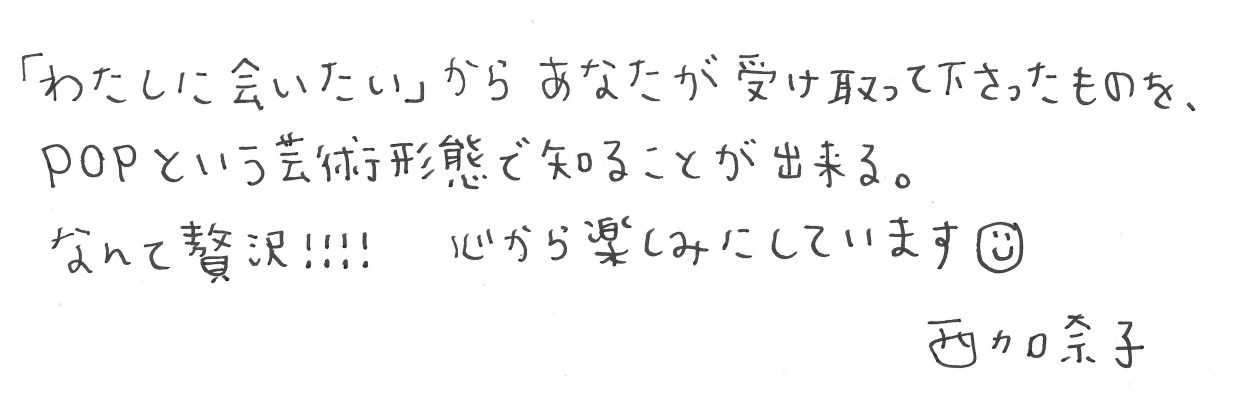 「わたしに会いたい」からあなたが受け取って下さったものを、
POPという芸術形態で知ることが出来る。
なんて贅沢!!!! 心から楽しみにしています☺
西加奈子